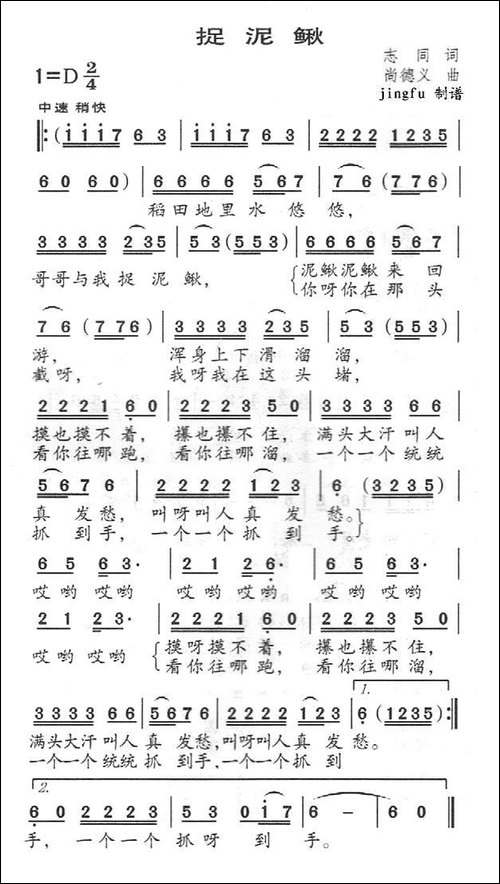 捉泥鳅
1=D 2/4
志同 词
尚德义 曲
jingfu 制谱
中速 稍快
‖: (i i i 7 6 3 | i i i 7 6 3 | 2 2 2 2 1 2 3 5 |
6 0 6 0) | 6 6 6 6 5 6 7 | 7 6 (7 7 6) |
稻田地里水悠悠,
3 3 3 3 2 3 5 | 5 3 (5 5 3) | 6 6 6 6 5 6 7 |
哥哥与我捉泥鳅, {泥鳅泥鳅来回
你呀你在那头
7 6 (7 7 6) | 3 3 3 3 2 3 5 | 5 3 (5 5 3) |
游, 浑身上下滑溜溜,
截呀, 我呀我在这头堵,
2 2 2 1 6 0 | 2 2 2 3 5 0 | 3 3 3 3 6 6 |
摸也摸不着, 攥也攥不住, 满头大汗叫人
看你往哪跑, 看你往哪溜, 一个一个统统
5 6 7 6 | 2 2 2 2 1 2 3 | 6 (3 2 3 5) |
真发愁, 叫呀叫人真发愁。}
抓到手, 一个一个抓到手。
6 5 6 3· | 2 1 2 6· | 6 5 6 3· |
哎哟哎哟 哎哟哎哟 哎哟哎哟
2 1 2 3· | 2 2 2 1 6 0 | 2 2 2 3 5 0 |
哎哟哎哟 {摸呀摸不着, 攥也攥不住,
看你往哪跑, 看你往哪溜,
1.
3 3 3 3 6 6 | 5 6 7 6 | 2 2 2 2 1 2 3 | 6 (1 2 3 5) :‖
满头大汗叫人真发愁,叫呀叫人真发愁。
一个一个统统抓到手,一个一个抓到
2.
6 0 2 2 2 3 | 5 3 0 i 7 | 6 − | 6 0 ‖
手, 一个一个抓呀到手。